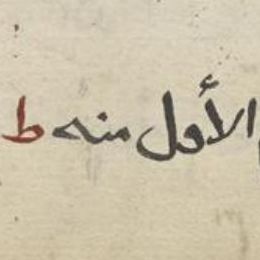 الأول منه ط